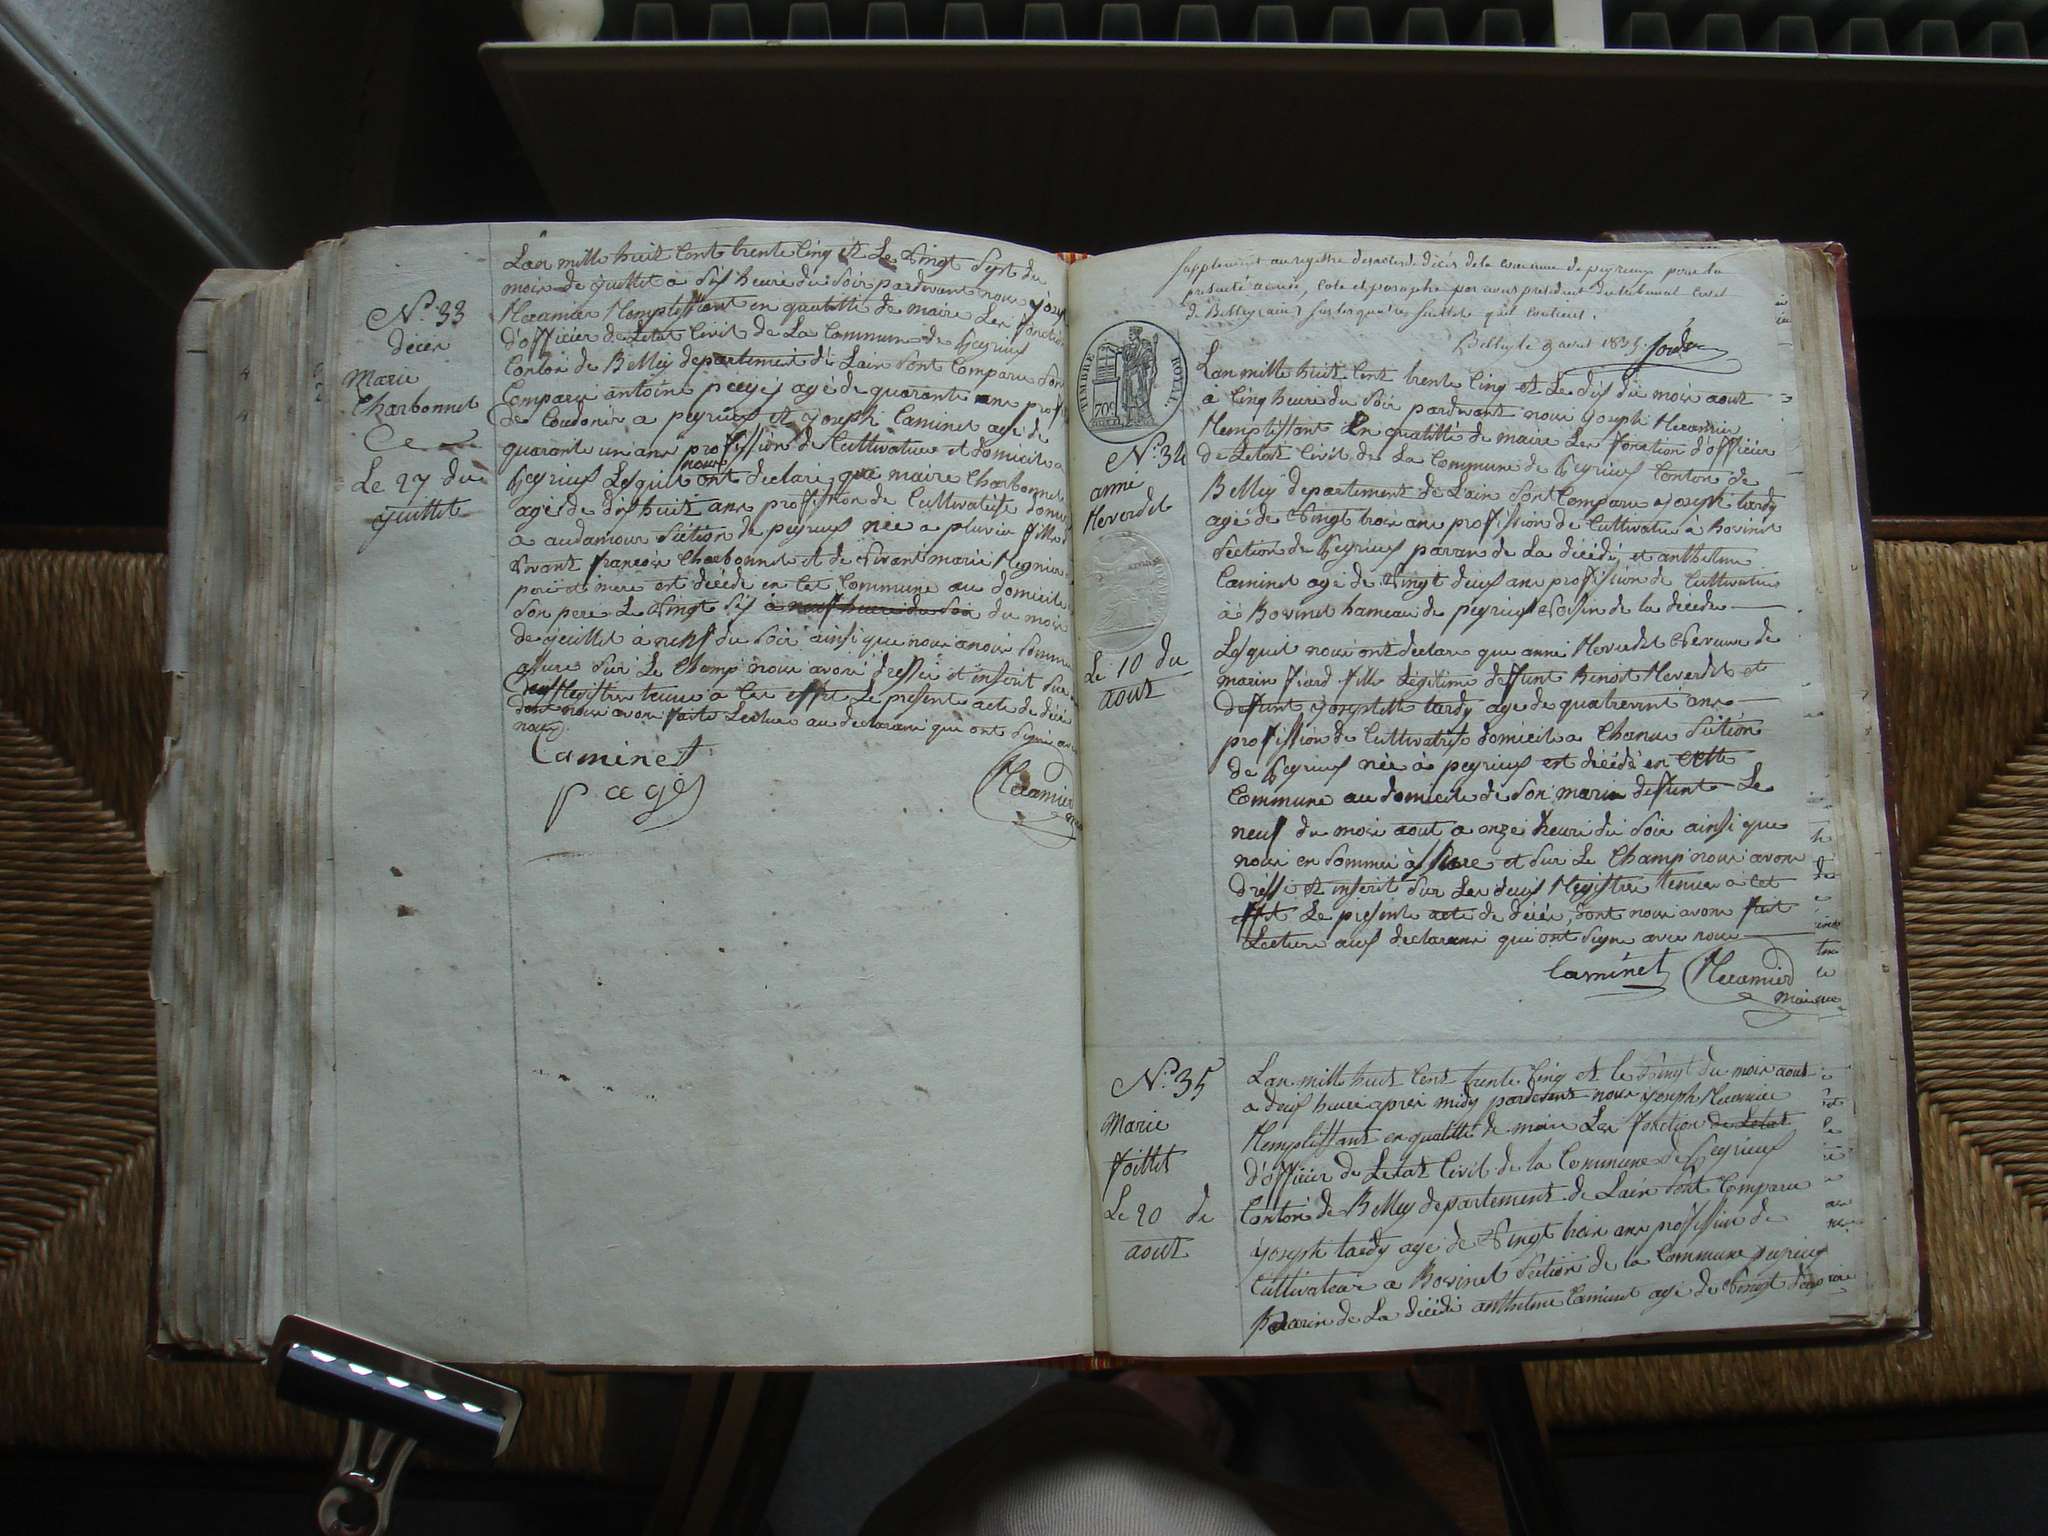 N.º 33
décès
Marie
Charbonnet
Le 27 du
juillet
Lan mille huit Cent trente Cinq et Le Vingt Sept du
mois de juillet à Six heure du Soir pardevant nous yoseph
Récamier Remplissant en qualitté de maire Les fonction
d'officier de Letat Civil de La Commune de Peyrieux
Canton de Belley département de Lain Sont Comparu
Comparu antoine pagés agé de quarante ans
de a peyrieux et yoseph Caminet agé de
quarante un ans profission de Cultivateur et domicile a
Peyrieux Lesquit nous ont declaré que maire Charbonnet
agé de dix huit ans profission de Cultivatrise
a audamour Section de peyrieux née a fille
Vivant françois Charbonnet et de Vivant marie Regnier
pere et mere est décédé en Cet Commune au domicile
Son pere Le Vingt Six à neuf heure du Soir du mois
de yeuillet à neuf du Soir ainsi que nous anous Somme
assure Sur Le Champ nous avons dressé et inscrit Sur
deux Registres tenus a Cet effet Le présent acte de décé
dont nous avons faite Lecture au declarans que ont Signé avec
nous.
Caminet
pagés
Récamier
Supplement au registre des actes de décès de la commune de peyrieux pour la
presente année, Coté et paraphé par nous président du tribunal Civil
de Belley (ain) sur les quatres feuillets qu'il contient.
Belley le 9 avril 1835.
TIMBRE ROYAL
70c
N.º 34
anne
Reverdet
Le 10 du
aout
Lan mille huit Cent trente Cinq et Le dix du mois aout
à Cinq heure du Soir pardevant nous yoseph Récamier
Remplissant En qualitté de maire Les fonction d'officier
de Letat Civil de La Commune de Peyrieux Canton de
Belley département de Lain Sont Comparu yoseph tardy
agé de Vingt trois ans profission de Cultivateur à Bovinet
Section de Peyrieux de La décédé et anthelme
Caminet agé de Vingt deux ans profission de Cultivateur
à Bovinet hameau de peyrieux Voisin de la décédé
Lesquit nous ont declaré que anne Reverdet Veveuve de
marin fiard fille Légitime deffunt Benoit Reverdet et
deffunt yosephtte tardy agé de quatrevint ans
profission de Cultivatrise domicile a Chanve Section
de Peyrieux née à peyrieux est décédé en Cette
Commune au domicile de Son marin deffunt Le
neuf du mois aout a onze heure du Soir ainsi que
nous en Somme assure et Sur Le Champ nous avons
dressé et inscrit Sur Les deux Registre tenus a Cet
effet Le présente acte de décés, dont nous avons fait
Lecture aux declarans qui ont Signe avec nous
Caminet Récamier
maire
N.º 35
Marie
foillet
Le 20 de
aout
Lan mille huit Cent trente Cinq et le Vingt du mois aout
a deux heure apres midy pardevant nous yoseph Récamier
Remplissant en qualitté de maire Les fonction de Letat
d'officier de Letat Civil de la Commune de Peyrieux
Canton de Belley departement de Lain Sont Comparu
yoseph tardy agé de Vingt trois ans profission de
Cultivateur a Bovinet Section de la Commune peyrieux
de La décédé anthelme Caminet agé de Vingt deux